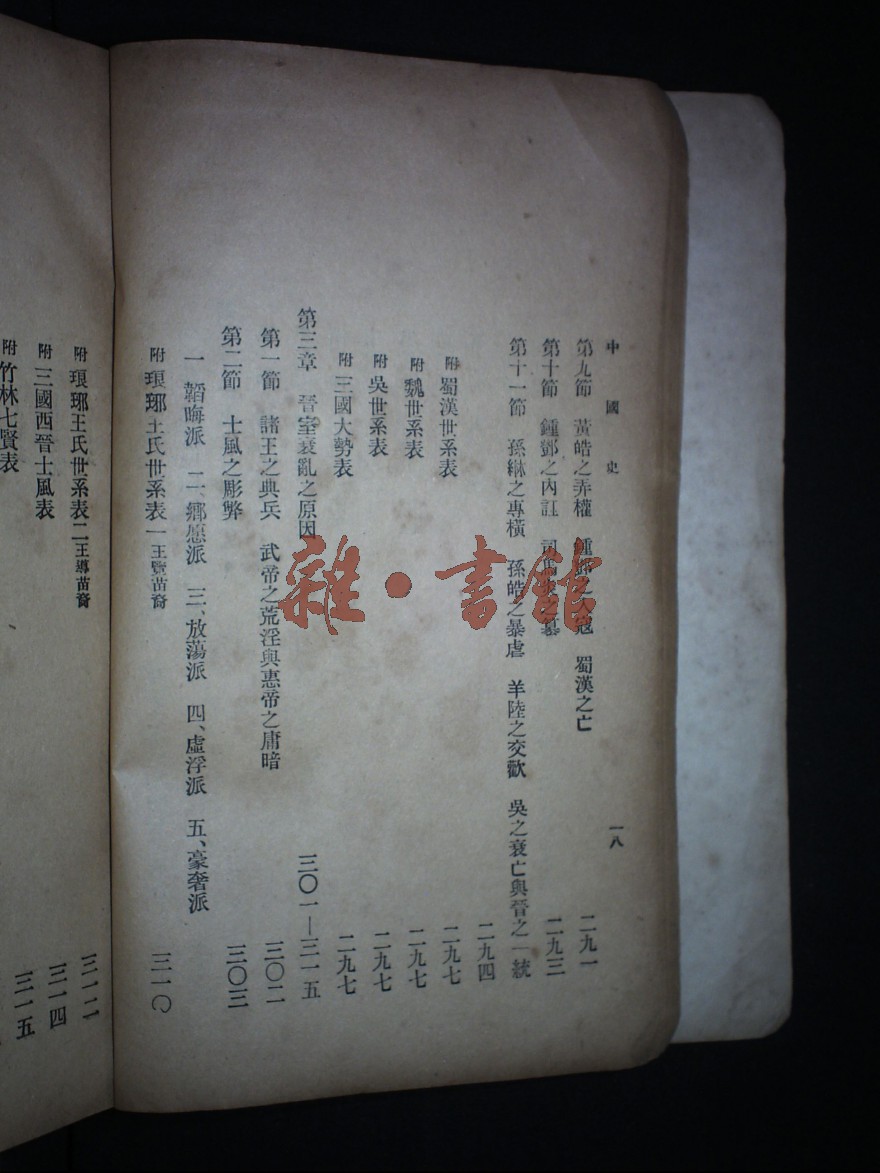 中國史
一八
第九節 黃皓之弄權 鍾鄧之入寇 蜀漢之亡 二九一
第十節 鍾鄧之內訌 司馬炎之篡 二九三
第十一節 孫綝之專橫 孫皓之暴虐 羊陸之交歡 吳之衰亡與晉之一統
二九四
附 蜀漢世系表 二九七
附 魏世系表 二九七
附 吳世系表 二九七
附 三國大勢表 二九七
第三章 晉室衰亂之原因 三〇一—三一五
第一節 諸王之典兵 武帝之荒淫與惠帝之庸暗 三〇二
第二節 士風之彫弊 三〇三
一 韜晦派 二、鄉愿派 三、放蕩派 四、虛浮派 五、豪奢派
附 琅琊王氏世系表一 王覽苗裔 三一〇
附 琅琊王氏世系表二 王導苗裔 三一二
附 三國西晉士風表 三一四
附 竹林七賢表 三一五
雜·書館